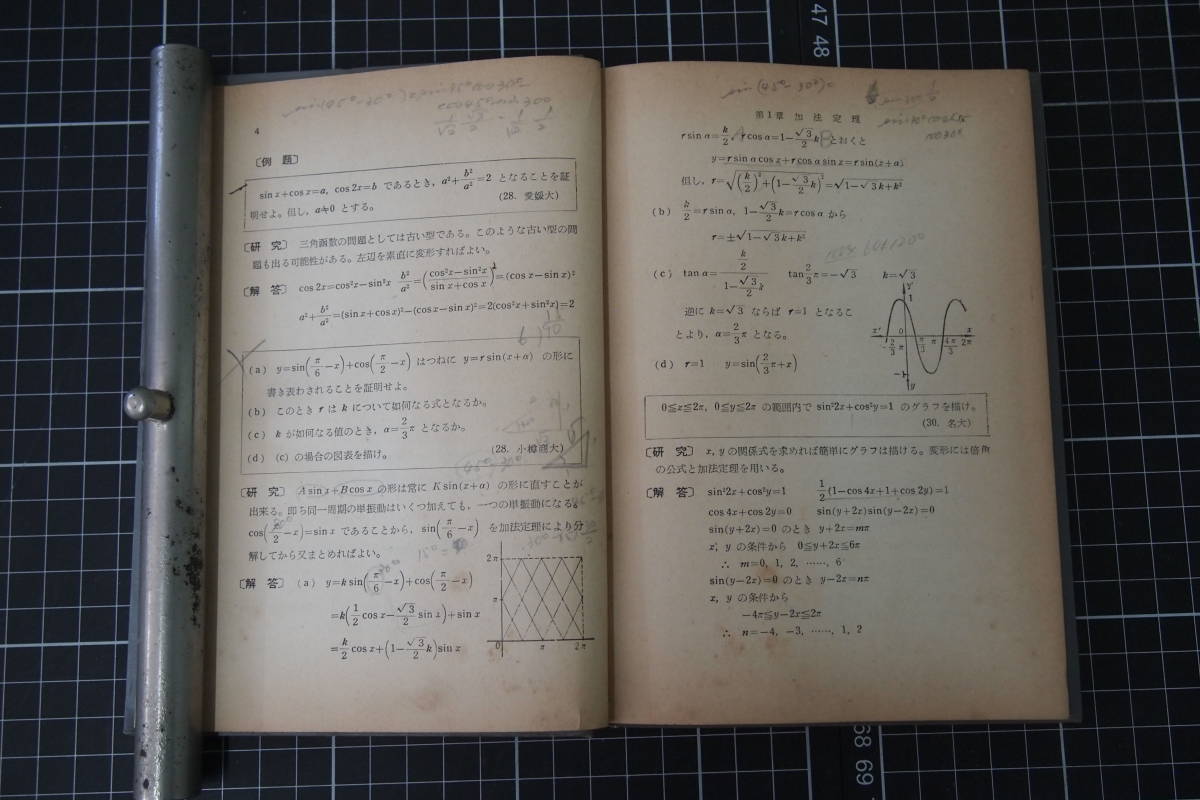 4
〔例 題〕
sin x+cos x=a, cos 2x=b であるとき, a²+b²/a²=2 となることを証
明せよ。但し, a≠0 とする。 (28. 愛媛大)
〔研 究〕 三角函数の問題としては古い型である。このような古い型の問
題も出る可能性がある。左辺を素直に変形すればよい。
〔解 答〕 cos 2x=cos²x−sin²x b²/a²=((cos²x−sin²x)/(sin x+cos x))²=(cos x−sin x)²
a²+b²/a²=(sin x+cos x)²−(cos x−sin x)²=2(cos²x+sin²x)=2
(a) y=sin(π/6−x)+cos(π/2−x) はつねに y=r sin(x+α) の形に
書き表わされることを証明せよ。
(b) このとき r は k について如何なる式となるか。
(c) k が如何なる値のとき, α=2/3π となるか。
(d) (c) の場合の図表を描け。 (28. 小樽商大)
〔研 究〕 A sin x+B cos x の形は常に K sin(x+α) の形に直すことが
出来る。即ち同一周期の単振動はいくつ加えても, 一つの単振動になる。
cos(π/2−x)=sin x であることから, sin(π/6−x) を加法定理により分
解してから又まとめればよい。
〔解 答〕 (a) y=k sin(π/6−x)+cos(π/2−x)
=k(1/2 cos x−√3/2 sin x)+sin x
=k/2 cos x+(1−√3/2 k)sin x
2π
π
0 π 2π
第1章 加 法 定 理
r sin α=k/2, r cos α=1−√3/2 k とおくと
y=r sin α cos x+r cos α sin x=r sin(x+α)
但し, r=√((k/2)²+(1−√3/2 k)²)=√(1−√3k+k²)
(b) k/2=r sin α, 1−√3/2 k=r cos α から
r=±√(1−√3k+k²)
(c) tan α=(k/2)/(1−√3/2 k) tan 2/3π=−√3 k=√3
逆に k=√3 ならば r=1 となるこ
とより, α=2/3π となる。
(d) r=1 y=sin(2/3π+x)
y'
1
x' −2/3π 0 π/3 π 4π/3 2π x
−1
y
0≦x≦2π, 0≦y≦2π の範囲内で sin²2x+cos²y=1 のグラフを描け。
(30. 名大)
〔研 究〕 x, y の関係式を求めれば簡単にグラフは描ける。変形には倍角
の公式と加法定理を用いる。
〔解 答〕 sin²2x+cos²y=1 1/2(1−cos 4x+1+cos 2y)=1
cos 4x+cos 2y=0 sin(y+2x)sin(y−2x)=0
sin(y+2x)=0 のとき y+2x=mπ
x, y の条件から 0≦y+2x≦6π
∴ m=0, 1, 2, ……, 6
sin(y−2x)=0 のとき y−2x=nπ
x, y の条件から
−4π≦y−2x≦2π
∴ n=−4, −3, ……, 1, 2
47 48
68 69